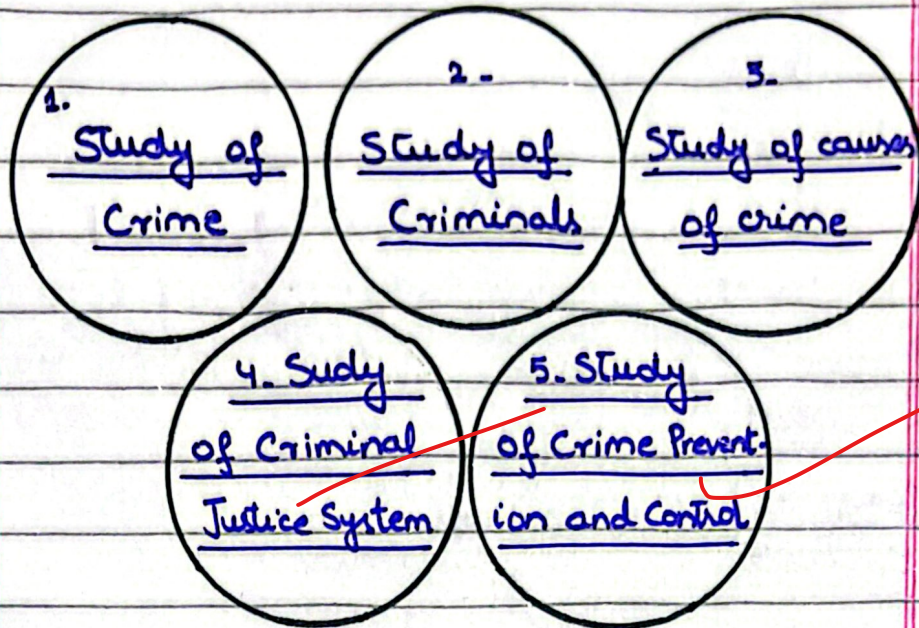 1.
Study of
Crime
2-
Study of
Criminals
3-
Study of causes
of crime
4- Sudy
of Criminal
Justice System
5- Study
of Crime Prevent-
ion and Control